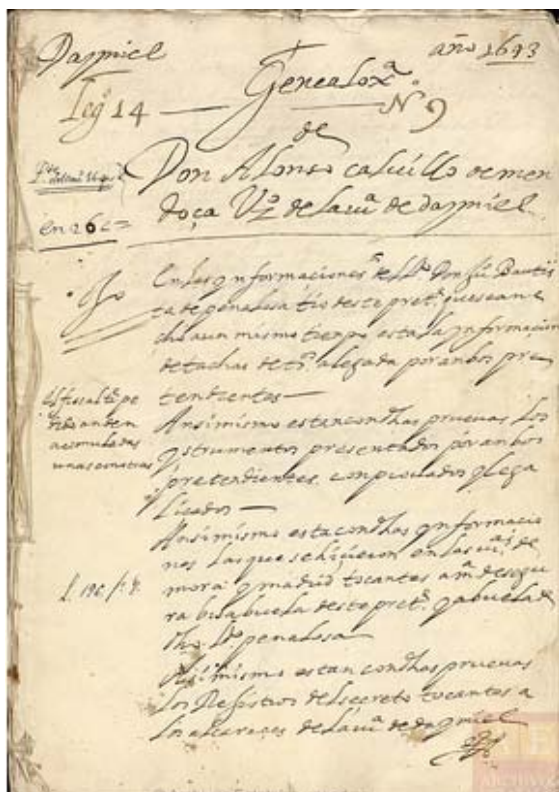 Daymiel
año 1693
Leg 14 — Genealoxª
Nº 9
de
Don Alonso caluillo de men
doça Vº de la uª de daymiel
en 26
Ojo
En las ynformaciones del Ldo Don Ju Bautis
ta de penalosa tio deste pretᵉ que se an e
cho a un mismo tiempo esta la ynformacion
de tachas de tᵒˢ alegada por anbos pre
tendientes —
El fiscal
Ansimismo estan con dhas pruevas los
ynstrumentos presentados por anbos
pretendientes, conpulsados y lega
liçados —
Ansimismo esta con dhas ynformacio
nes las que se hiçieron en las uªˢ de
mora y madrid tocantes a mª de segu
ra bisabuela deste pretᵉ y abuela de
dho Ldo penalosa —
Ansimismo estan con dhas pruevas
los Rexistros del secreto tocantes a
los alcaraçes de la uª de daymiel
ARCHIVOS